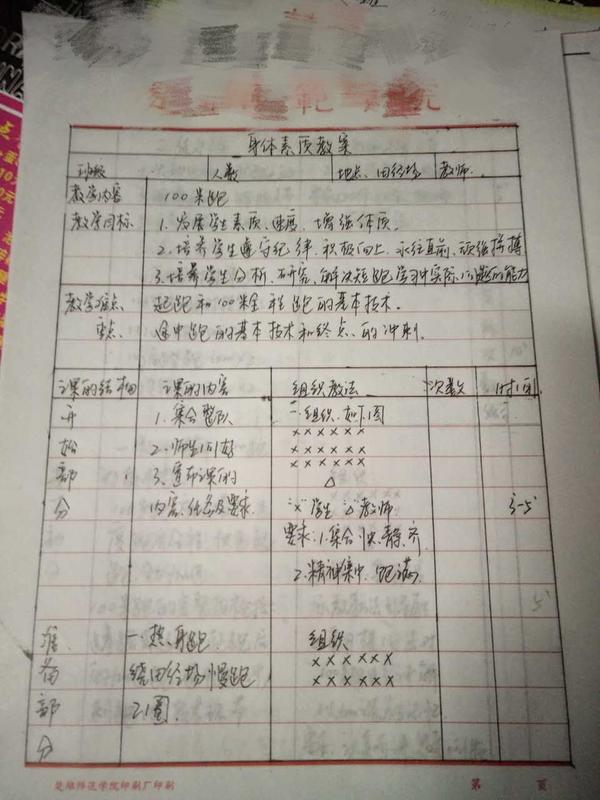 身体素质教案
班级 人数 地点:田径场 教师:
教学内容 100米跑
教学目标 1.发展学生素质、速度、增强体质。
2.培养学生遵守纪律,积极向上,永往直前,顽强拼搏
3.培养学生分析、研究、解决短跑学习中实际问题的能力
教学难点 起跑和100米全程跑的基本技术。
重点 途中跑的基本技术和终点的冲刺。
课的结构 课的内容 组织教法 次数 时间
开 1.集合整队 一.组织.如下图
× × × × × ×
始 2.师生问好 × × × × × ×
× × × × × ×
部 3.宣布课的 △
分 内容、任务及要求. "×"学生 "△"教师 3-5'
要求:1.集合快、静、齐
2.精神集中、饱满.
5'
准 一.热身跑. 组织
备 绕田径场慢跑 × × × × × ×
× × × × × ×
部 2圈.
分
楚雄师范学院印刷厂印刷 第 页